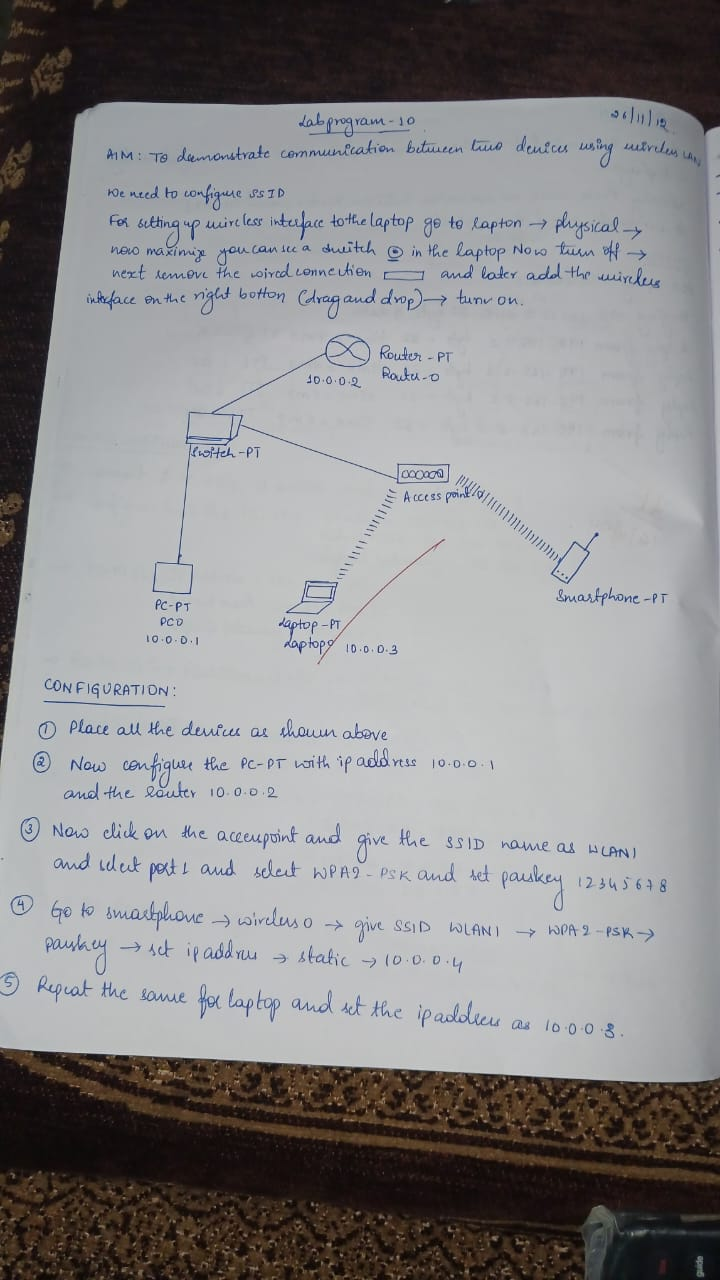 Lab program-10
AIM: To demonstrate communication between two devices using wireless LAN
We need to configure SSID
For setting up wireless interface to the laptop go to lapton → physical →
now maximize you can see a switch in the laptop Now turn off →
next remove the wired connection and later add the wireless
interface on the right botton (drag and drop) → turn on.
Router-PT
10.0.0.2 Router-0
Switch-PT
Access point
Smartphone-PT
PC-PT
PC0
10.0.0.1
Laptop-PT
Laptop0 10.0.0.3
CONFIGURATION:
① Place all the devices as shown above
② Now configure the PC-PT with ip address 10.0.0.1
and the router 10.0.0.2
③ Now click on the accesspoint and give the SSID name as WLAN1
and select port 1 and select WPA2-PSK and set passkey 12345678
④ Go to smartphone → wireless0 → give SSID WLAN1 → WPA2-PSK →
passkey → set ip address → static → 10.0.0.4
⑤ Repeat the same for laptop and set the ip address as 10.0.0.3.
guide